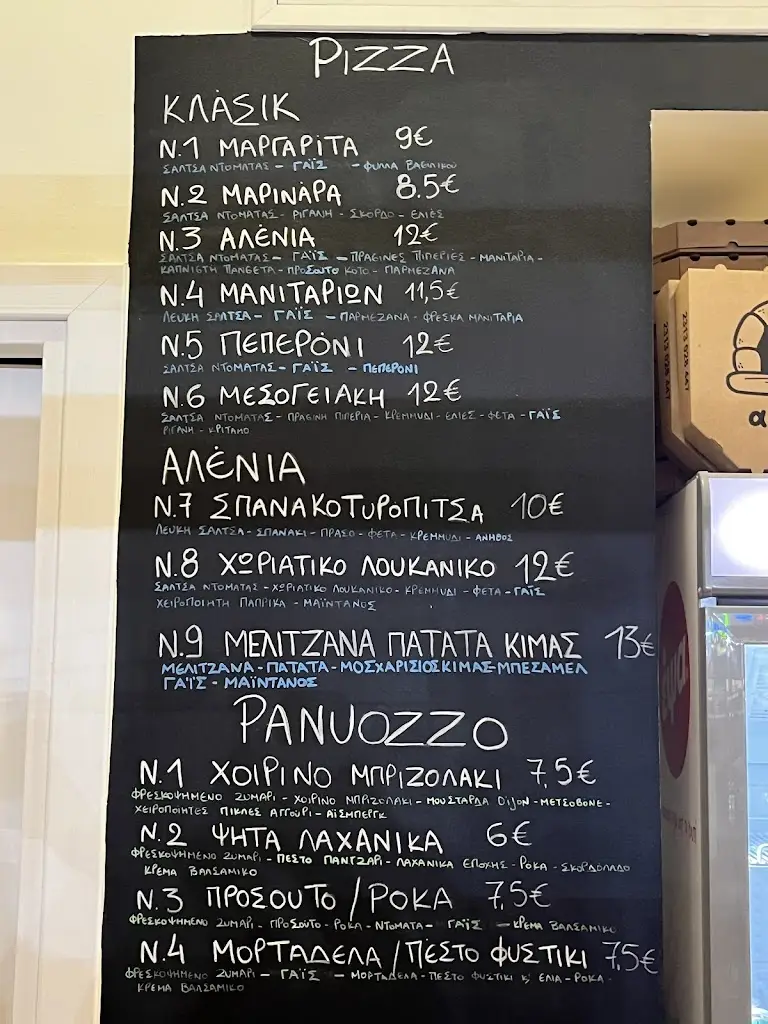 PIZZA
ΚΛΑΣΙΚ
Ν.1 ΜΑΡΓΑΡΙΤΑ 9€
ΣΑΛΤΣΑ ΝΤΟΜΑΤΑΣ - ΓΑΪΣ - ΦΥΛΛΑ ΒΑΣΙΛΙΚΟΥ
Ν.2 ΜΑΡΙΝΑΡΑ 8.5€
ΣΑΛΤΣΑ ΝΤΟΜΑΤΑΣ - ΡΙΓΑΝΗ - ΣΚΟΡΔΟ - ΕΛΙΕΣ
Ν.3 ΑΛΕΝΙΑ 12€
ΣΑΛΤΣΑ ΝΤΟΜΑΤΑΣ - ΓΑΪΣ - ΠΡΑΣΙΝΕΣ ΠΙΠΕΡΙΕΣ - ΜΑΝΙΤΑΡΙΑ -
ΚΑΠΝΙΣΤΗ ΠΑΝΣΕΤΑ - ΠΡΟΣΟΥΤΟ ΚΟΤΟ - ΠΑΡΜΕΖΑΝΑ
Ν.4 ΜΑΝΙΤΑΡΙΩΝ 11,5€
ΛΕΥΚΗ ΣΑΛΤΣΑ - ΓΑΪΣ - ΠΑΡΜΕΖΑΝΑ - ΦΡΕΣΚΑ ΜΑΝΙΤΑΡΙΑ
Ν.5 ΠΕΠΕΡΟΝΙ 12€
ΣΑΛΤΣΑ ΝΤΟΜΑΤΑΣ - ΓΑΪΣ - ΠΕΠΕΡΟΝΙ
Ν.6 ΜΕΣΟΓΕΙΑΚΗ 12€
ΣΑΛΤΣΑ ΝΤΟΜΑΤΑΣ - ΠΡΑΣΙΝΗ ΠΙΠΕΡΙΑ - ΚΡΕΜΜΥΔΙ - ΕΛΙΕΣ - ΦΕΤΑ - ΓΑΪΣ
ΡΙΓΑΝΗ - ΚΡΙΤΑΜΟ
ΑΛΕΝΙΑ
Ν.7 ΣΠΑΝΑΚΟΤΥΡΟΠΙΤΣΑ 10€
ΛΕΥΚΗ ΣΑΛΤΣΑ - ΣΠΑΝΑΚΙ - ΠΡΑΣΟ - ΦΕΤΑ - ΚΡΕΜΜΥΔΙ - ΑΝΗΘΟΣ
Ν.8 ΧΩΡΙΑΤΙΚΟ ΛΟΥΚΑΝΙΚΟ 12€
ΣΑΛΤΣΑ ΝΤΟΜΑΤΑΣ - ΧΩΡΙΑΤΙΚΟ ΛΟΥΚΑΝΙΚΟ - ΚΡΕΜΜΥΔΙ - ΦΕΤΑ - ΓΑΪΣ
ΧΕΙΡΟΠΟΙΗΤΗ ΠΑΠΡΙΚΑ - ΜΑΪΝΤΑΝΟΣ
Ν.9 ΜΕΛΙΤΖΑΝΑ ΠΑΤΑΤΑ ΚΙΜΑΣ 13€
ΜΕΛΙΤΖΑΝΑ - ΠΑΤΑΤΑ - ΜΟΣΧΑΡΙΣΙΟΣ ΚΙΜΑΣ - ΜΠΕΣΑΜΕΛ
ΓΑΪΣ - ΜΑΪΝΤΑΝΟΣ
PANUOZZO
Ν.1 ΧΟΙΡΙΝΟ ΜΠΡΙΖΟΛΑΚΙ 7,5€
ΦΡΕΣΚΟΨΗΜΕΝΟ ΖΥΜΑΡΙ - ΧΟΙΡΙΝΟ ΜΠΡΙΖΟΛΑΚΙ - ΜΟΥΣΤΑΡΔΑ Dijon - ΜΕΤΣΟΒΟΝΕ -
ΧΕΙΡΟΠΟΙΗΤΕΣ ΠΙΚΛΕΣ ΑΓΓΟΥΡΙ - ΑΙΣΜΠΕΡΓΚ
Ν.2 ΨΗΤΑ ΛΑΧΑΝΙΚΑ 6€
ΦΡΕΣΚΟΨΗΜΕΝΟ ΖΥΜΑΡΙ - ΠΕΣΤΟ ΠΑΝΤΖΑΡΙ - ΛΑΧΑΝΙΚΑ ΕΠΟΧΗΣ - ΡΟΚΑ - ΣΚΟΡΔΟΛΑΔΟ
ΚΡΕΜΑ ΒΑΛΣΑΜΙΚΟ
Ν.3 ΠΡΟΣΟΥΤΟ / ΡΟΚΑ 7,5€
ΦΡΕΣΚΟΨΗΜΕΝΟ ΖΥΜΑΡΙ - ΠΡΟΣΟΥΤΟ - ΡΟΚΑ - ΝΤΟΜΑΤΑ - ΓΑΪΣ - ΚΡΕΜΑ ΒΑΛΣΑΜΙΚΟ
Ν.4 ΜΟΡΤΑΔΕΛΑ / ΠΕΣΤΟ ΦΥΣΤΙΚΙ 7,5€
ΦΡΕΣΚΟΨΗΜΕΝΟ ΖΥΜΑΡΙ - ΓΑΪΣ - ΜΟΡΤΑΔΕΛΑ - ΠΕΣΤΟ ΦΥΣΤΙΚΙ Κ' ΕΛΙΑ - ΡΟΚΑ -
ΚΡΕΜΑ ΒΑΛΣΑΜΙΚΟ